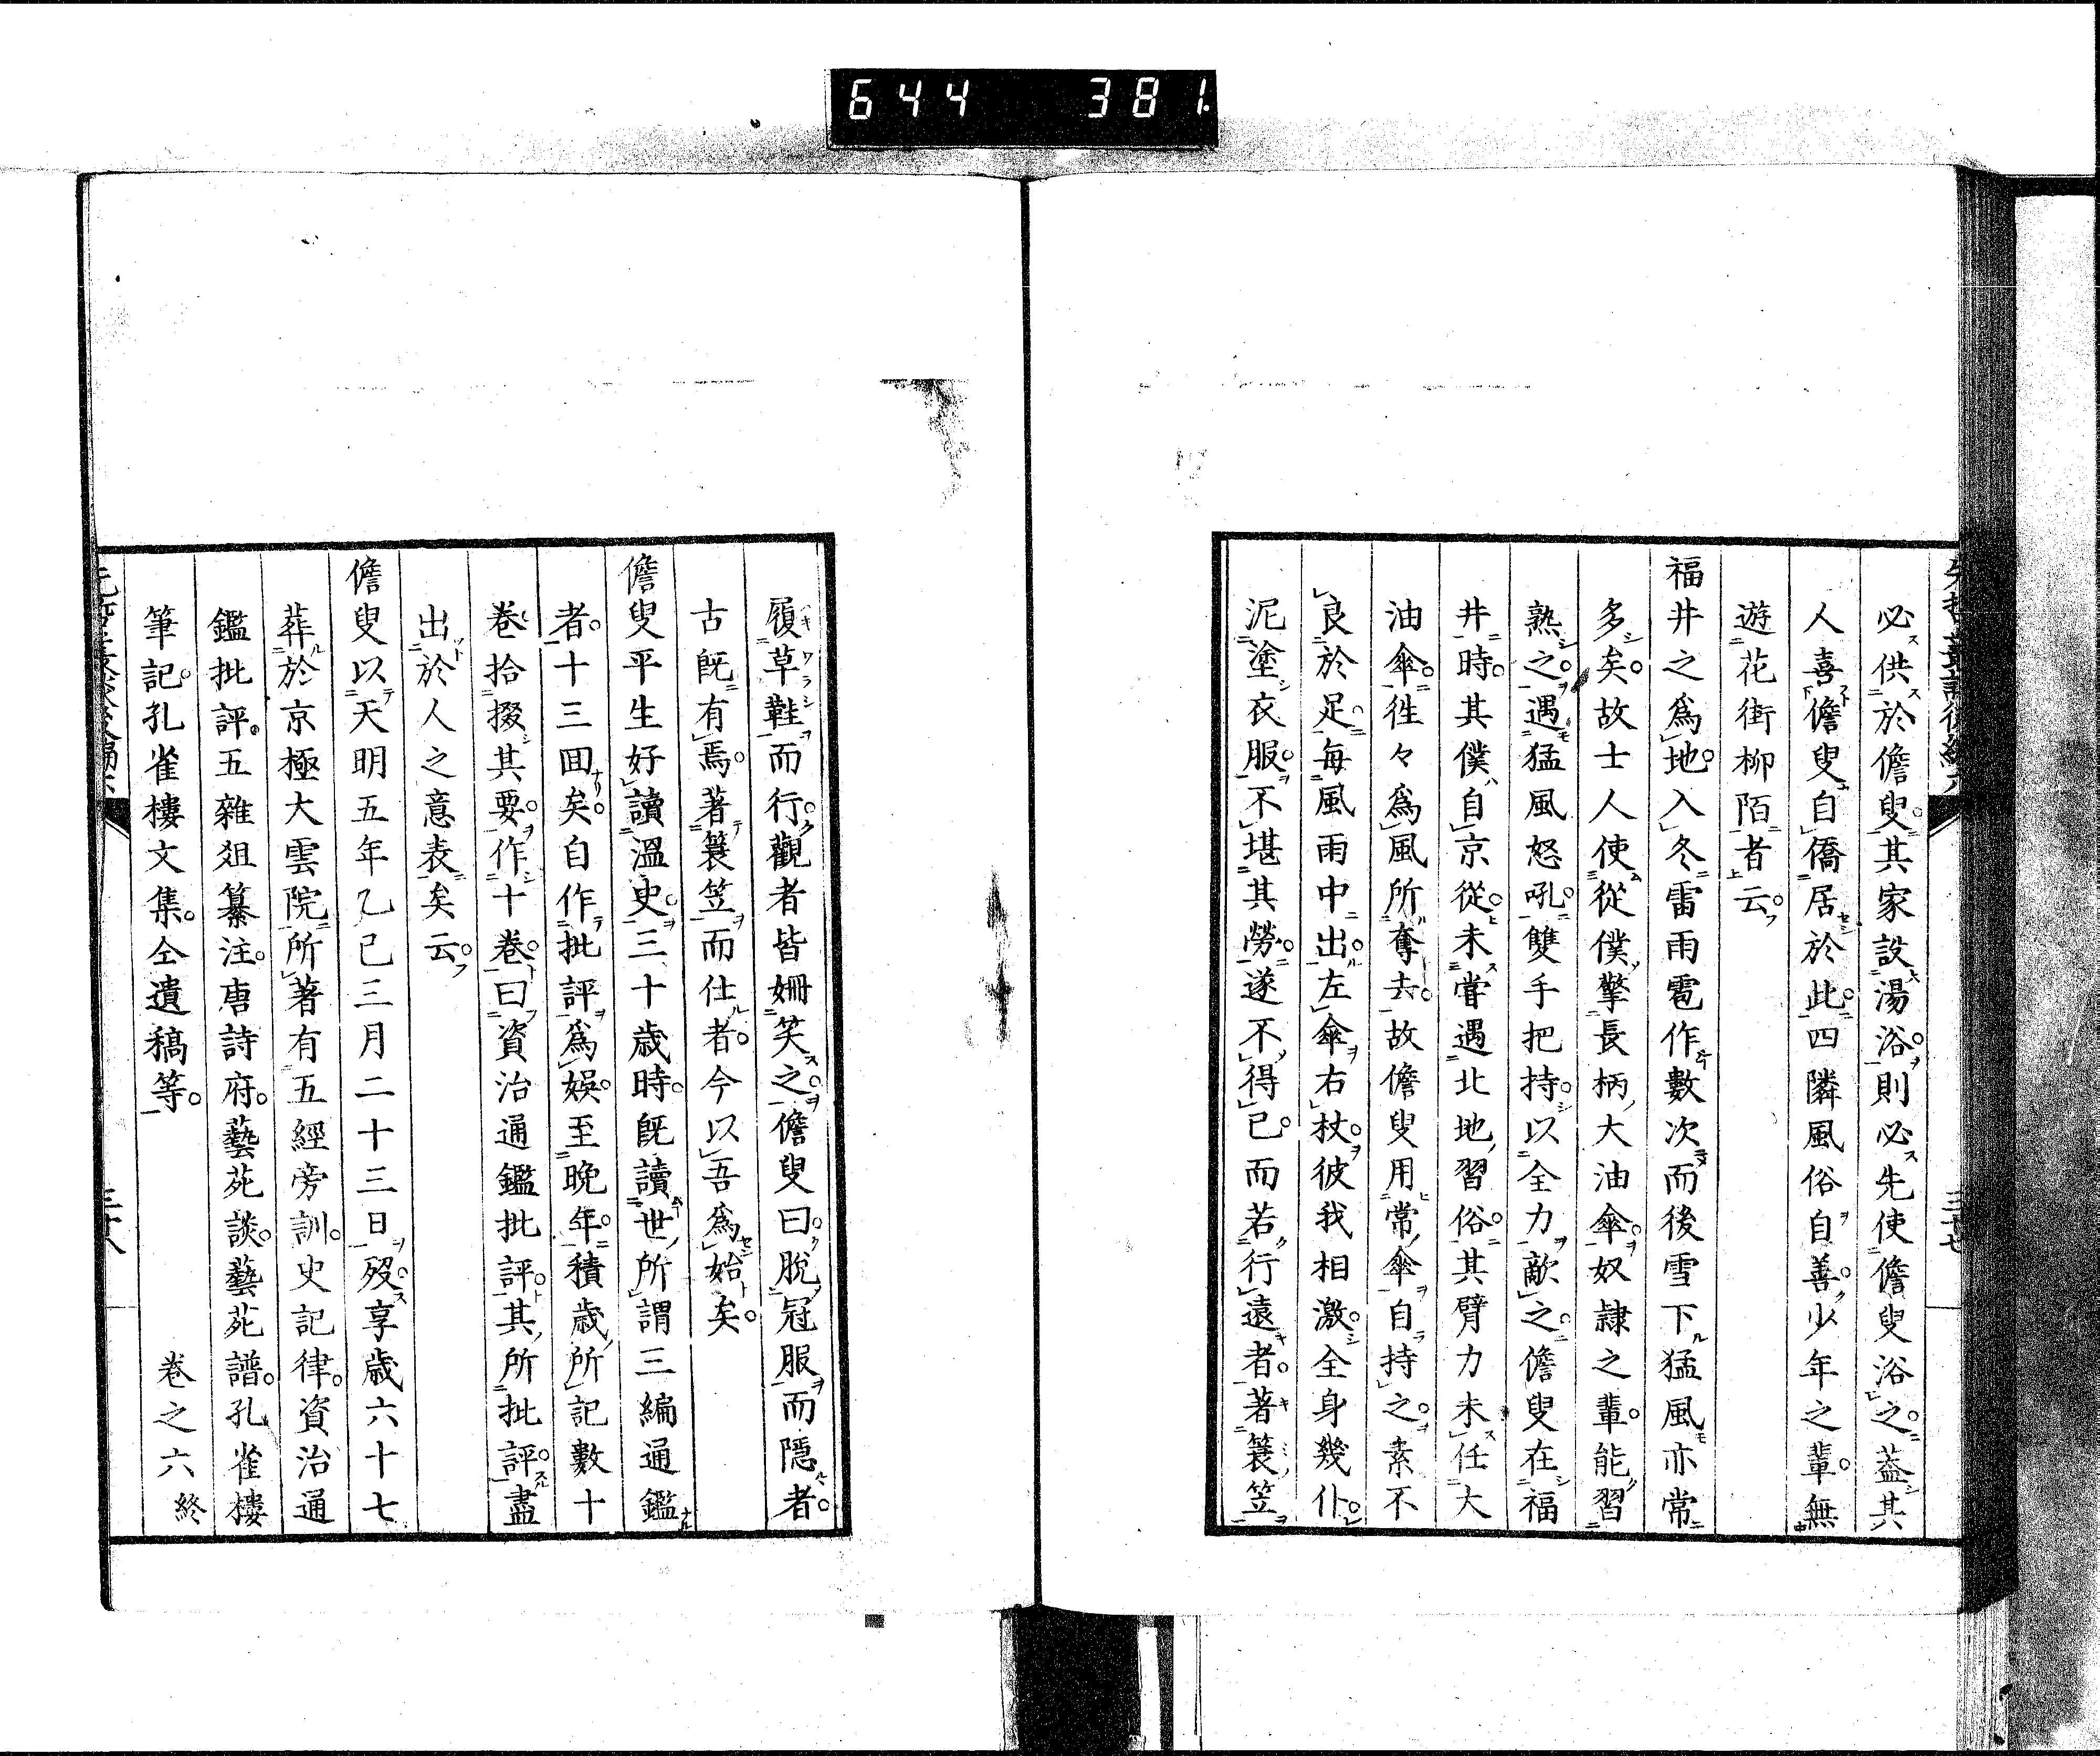 644 381
必供於儋叟其家設湯浴則必先使儋叟浴之葢其
人喜儋叟自僑居於此四隣風俗自善少年之輩無
遊花街柳陌者云
福井之爲地入冬雷雨雹作數次而後雪下猛風亦常
多矣故士人使從僕擎長柄大油傘奴隷之輩能習
熟之遇猛風怒吼雙手把持以全力敵之儋叟在福
井時其僕自京從未甞遇北地習俗其臂力未任大
油傘徃々爲風所奪去故儋叟用常傘自持之素不
良於足每風雨中出左傘右杖彼我相激全身幾仆
泥塗衣服不堪其勞遂不得已而若行遠者著簑笠
履草鞋而行觀者皆姍笑之儋叟曰脫冠服而隱者
古旣有焉著簑笠而仕者今以吾爲始矣
儋叟平生好讀溫史三十歲時旣讀世所謂三編通鑑
者十三回矣自作批評爲娛至晚年積歲所記數十
卷拾掇其要作十卷曰資治通鑑批評其所批評盡
出於人之意表矣云
儋叟以天明五年乙巳三月二十三日歿享歲六十七
葬於京極大雲院所著有五經旁訓史記律資治通
鑑批評五雜俎纂注唐詩府藝苑談藝苑譜孔雀樓
筆記孔雀樓文集仝遺稿等
卷之六終